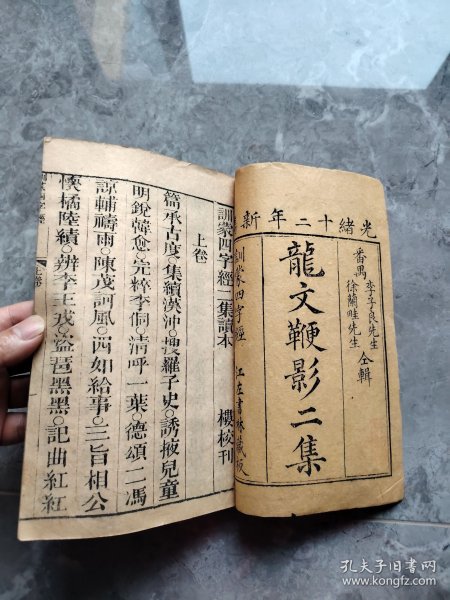 光緒十二年新
番禺
李子良先生
徐蘭畦先生
仝輯
龍文鞭影二集
訓蒙四字經
江左書林藏板
訓蒙四字經二集讀本
樓校刊
上卷
篇承古度○集續漢沖○搜羅子史○誘掖兒童
明銳韓愈○完粹李侗○清呼一葉○德頌二馮
諒輔禱雨○陳茂訶風○西如給事○三旨相公
懷橘陸績○辨李王戎○盜琶黑黑○記曲紅紅
上卷
孔夫子旧书网
www.kongfz.com